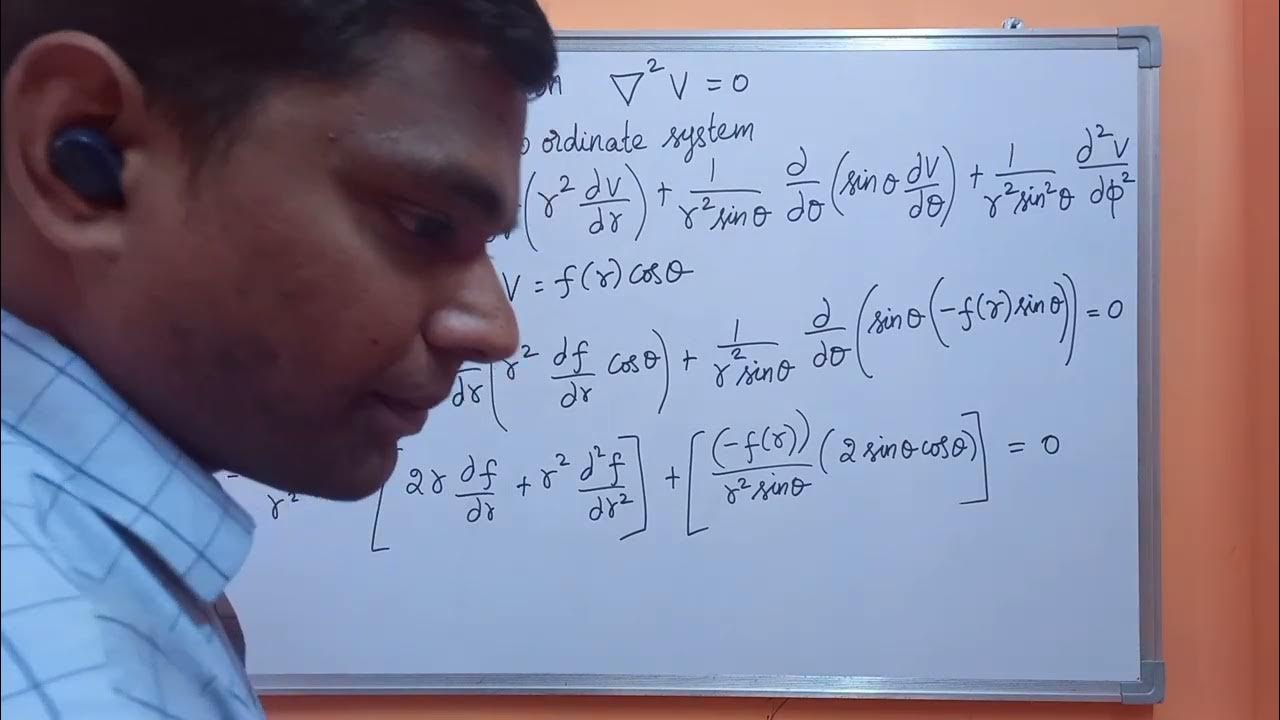 ∇²V = 0
ordinate system
(r² dV/dr) + 1/(r² sinθ) d/dθ (sinθ dV/dθ) + 1/(r² sin²θ) d²V/dϕ²
V = f(r) cosθ
/dr (r² df/dr cosθ) + 1/(r² sinθ) d/dθ (sinθ (-f(r) sinθ)) = 0
r² [2r df/dr + r² d²f/dr²] + [(-f(r))/(r² sinθ) (2 sinθ cosθ)] = 0